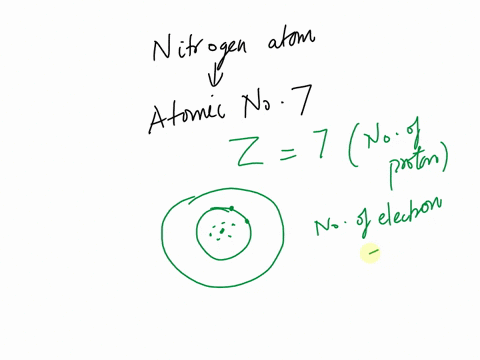 Nitrogen atom
Atomic No. 7
Z = 7 (No. of
proton)
No. of electron
-